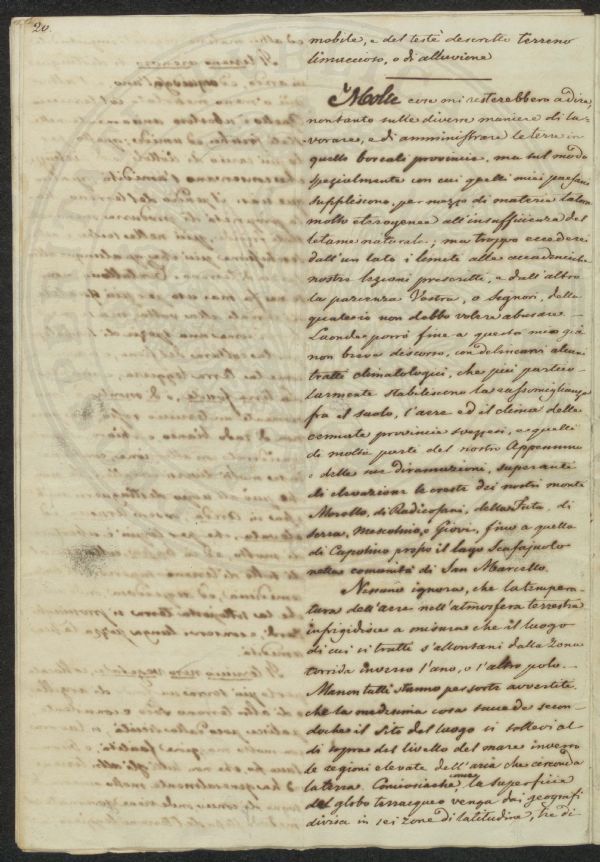 20.
mobile, e del testè descritto terreno
limaccioso, o di alluvione
Molte cose mi resterebbero a dire,
non tanto sulle diverse maniere di la-
vorare, e di amministrare le terre in
quelle boreali provincie, ma sul modo
specialmente con cui quelli miei paesani
suppliscono, per mezzo di materie talora
molto eterogenee all'insufficienza del
letame naturale; ma troppo eccedere
dall'un lato i limiti alle accademiche
nostre lezioni prescritti, e dall'altro
la pazienza Vostra, o Signori, della
quale io non debbo volere abusare.
Laonde porrò fine a questo mio già
non breve discorso, con delineare alcuni
tratti climatologici, che più partico-
larmente stabiliscono la rassomiglianza
fra il suolo, l'aere ed il clima delle
cennate provincie svezzesi, e quelli
di molte parti del nostro Appennino
e delle sue diramazioni, superanti
di elevazione le creste dei nostri monti
Morello, di Radicofani, della Futa, di
Serra, e Giovi, fino a quella
di Capolino presso il lago Scafajuolo
nella comunità di San Marcello.
Nessuno ignora, che la tempera-
tura dell'aere nell'atmosfera terrestre
infrigidisce a misura che il luogo
di cui si tratti s'allontani dalla Zona
torrida inverso l'uno, o l'altro polo.
Ma non tutti stanno per sorte avvertiti,
che la medesima cosa succede secon-
dochè il sito del luogo si sollevi al
di sopra del livello del mare inverso
le regioni elevate dell'aria che circonda
la terra. Conciosiachè, la superficie
del globo terracqueo venga dai geografi
divisa in sei zone di latitudine, tre di